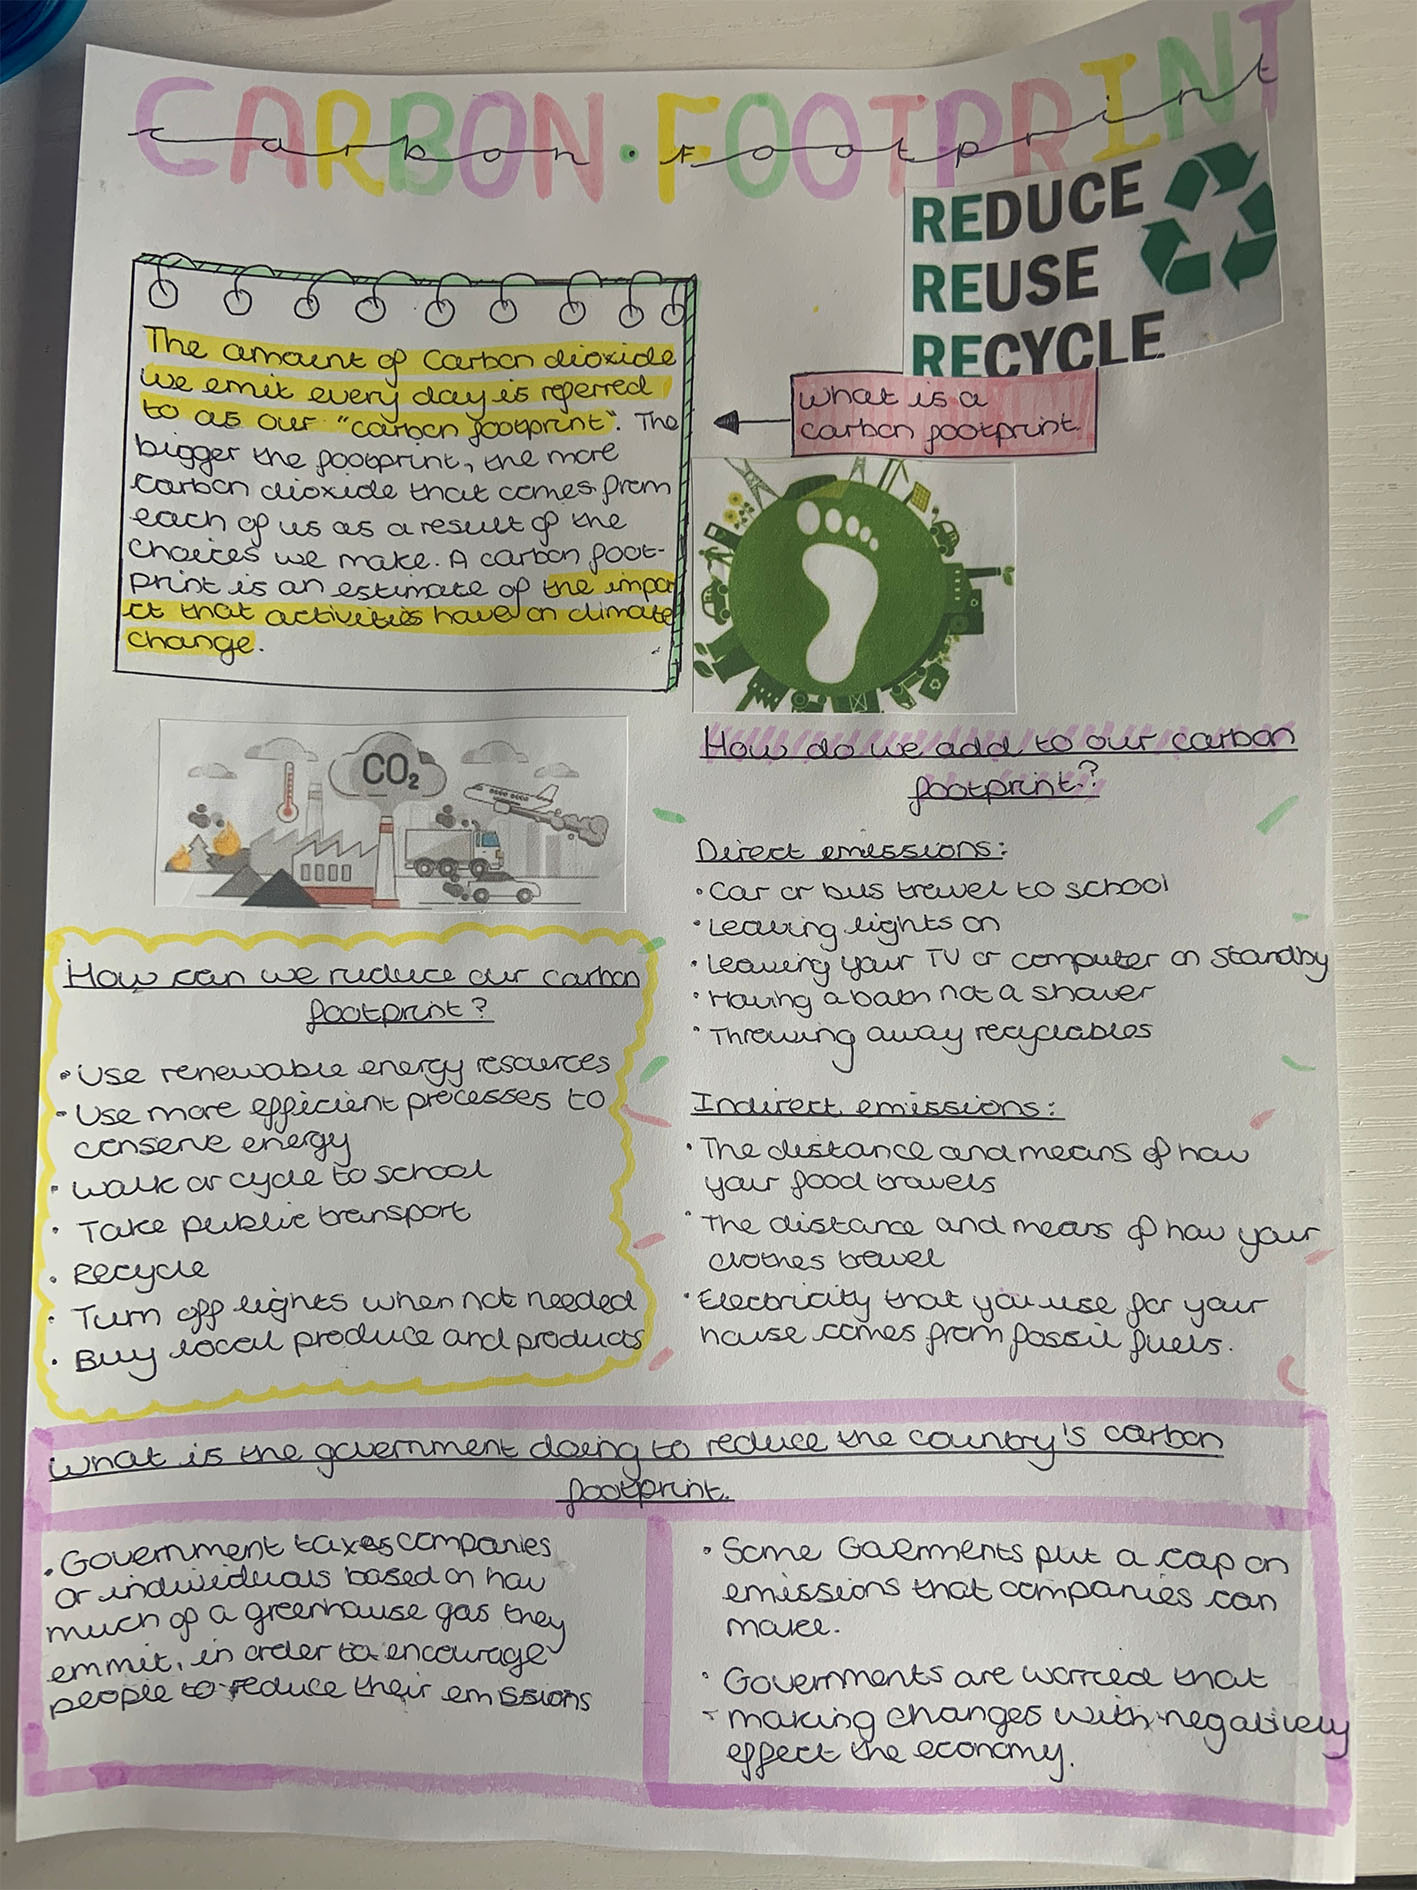 CARBON · FOOTPRINT
carbon · Footprint
REDUCE
REUSE
RECYCLE
What is a
carbon footprint
The amount of Carbon dioxide
we emit every day is referred
to as our "carbon footprint". The
bigger the footprint, the more
carbon dioxide that comes from
each of us as a result of the
choices we make. A carbon foot-
print is an estimate of the impa
ct that activities have on climate
change.
CO₂
How do we add to our carbon
footprint?
Direct emissions:
• Car or bus travel to school
• Leaving lights on
• Leaving your TV or computer on standby
• Having a bath not a shower
• Throwing away recyclables
Indirect emissions:
• The distance and means of how
your food travels
• The distance and means of how your
clothes travel
• Electricity that you use for your
house comes from fossil fuels.
How can we reduce our carbon
footprint?
• Use renewable energy resources
• Use more efficient processes to
conserve energy
• Walk or cycle to school
• Take public transport
• Recycle
• Turn off lights when not needed
• Buy local produce and products
What is the government doing to reduce the country's carbon
footprint.
• Government taxes companies
or individuals based on how
much of a greenhouse gas they
emmit, in order to encourage
people to reduce their emissions
• Some Goverments put a cap on
emissions that companies can
make.
• Governments are worried that
making changes with negatively
effect the economy.